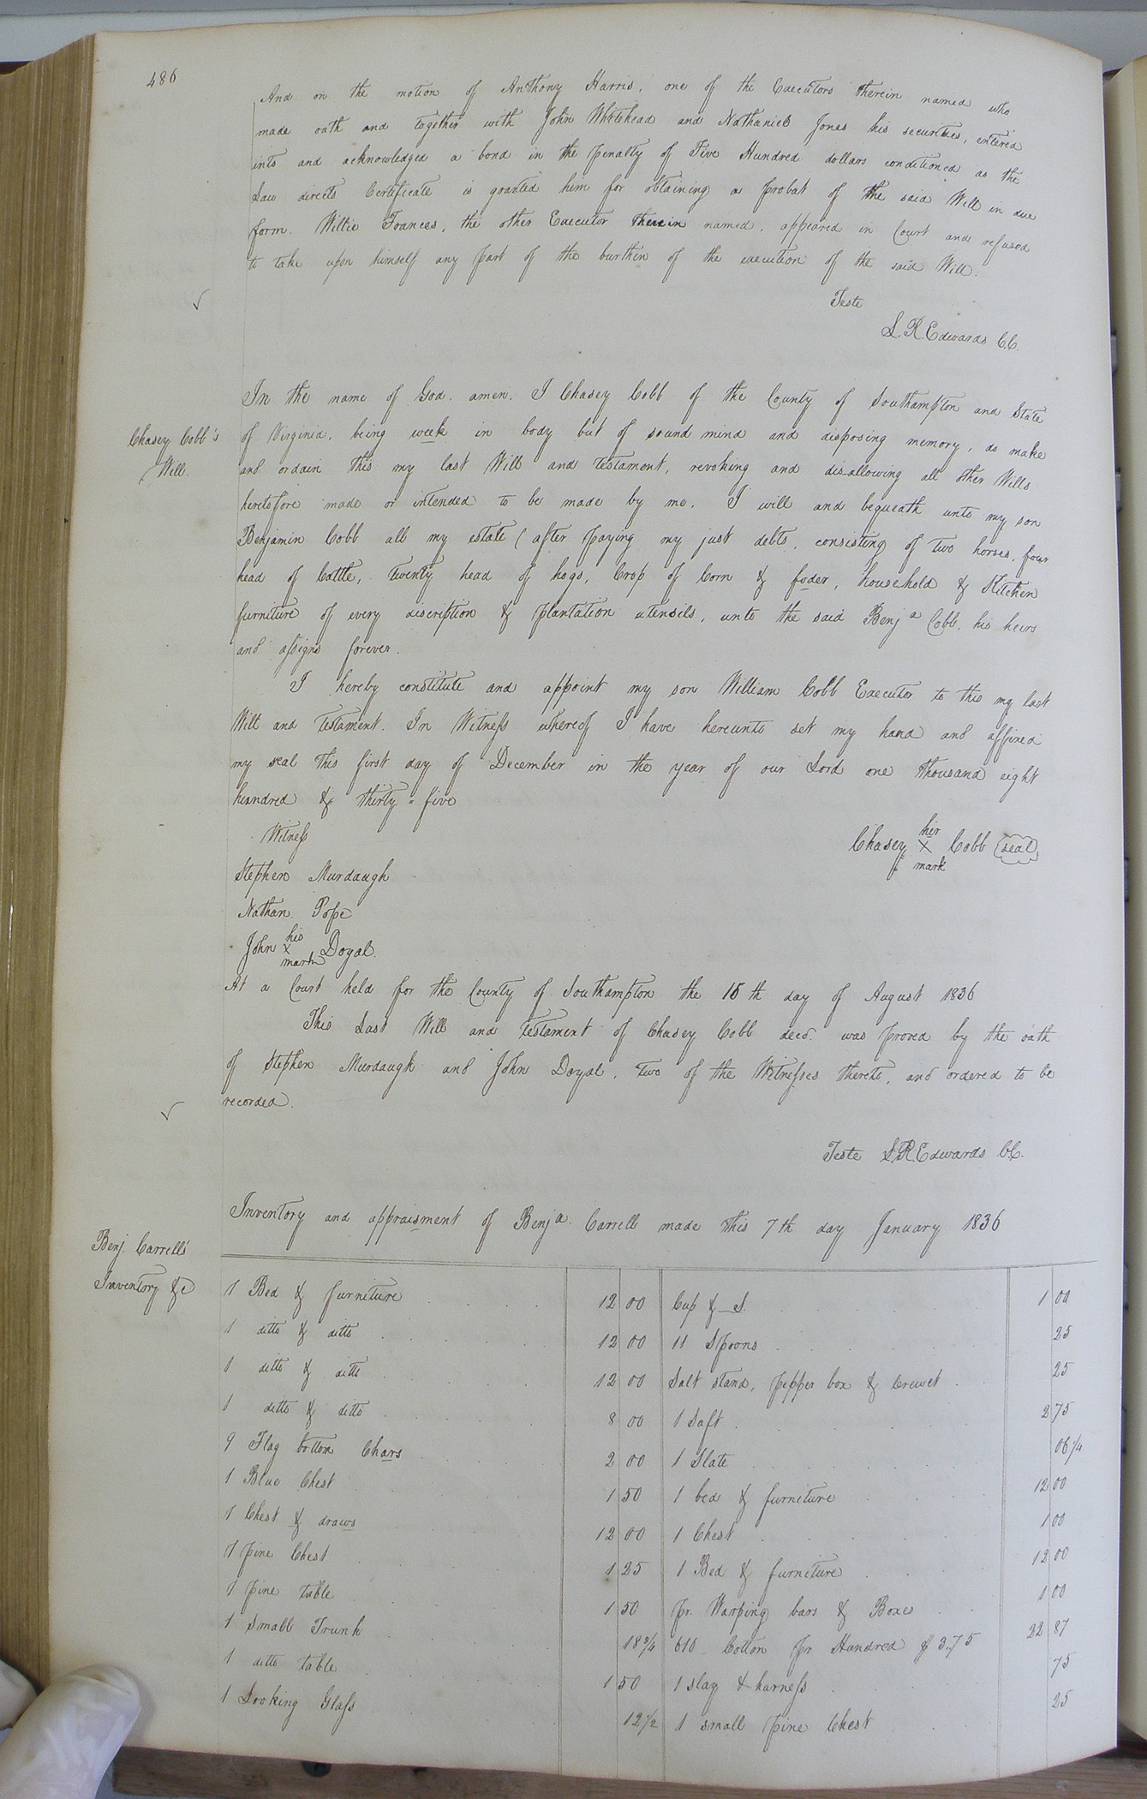 486
And on the motion of Anthony Harris, one of the Executors therein named who
made oath and together with John Whitehead and Nathaniel Jones his securities, entered
into and acknowledged a bond in the penalty of Five Hundred dollars conditioned as the
Law directs Certificate is granted him for obtaining a probat of the said Will in due
form. Willie Frances, the other Executor therein named, appeared in Court and refused
to take upon himself any part of the burthen of the execution of the said Will.
Teste
L. R. Edwards C.C.
Chasey Cobb's
Will
In the name of God. amen. I Chasey Cobb of the County of Southampton and State
of Virginia, being week in body but of sound mind and disposing memory, do make
and ordain this my last Will and Testament, revoking and disallowing all other Wills
heretofore made or intended to be made by me. I will and bequeath unto my son
Benjamin Cobb all my estate (after paying my just debts, consisting of two horses, four
head of Cattle, Twenty head of hogs, Crop of Corn & foder, household & Kitchen
furniture of every discription & plantation utensils, unto the said Benja Cobb, his heirs
and assigns forever.
I hereby constitute and appoint my son William Cobb Executor to this my last
Will and Testament. In Witness whereof I have hereunto set my hand and affixed
my seal this first day of December in the year of our Lord one thousand eight
hundred & thirty=five
Witness
Chasey her X mark Cobb seal
Stephen Murdaugh
Nathan Pope
John his x mark Doyal.
At a Court held for the County of Southampton the 15th day of August 1836
This Last Will and Testament of Chasey Cobb decd. was proved by the oath
of Stephen Murdaugh and John Doyal, two of the Witnesses thereto, and ordered to be
recorded.
Teste L. R. Edwards C.C.
Inventory and appraisment of Benja. Carrell made this 7th day January 1836
Benj. Carrell's
Inventory &c
1 Bed & furneture 12 00
1 ditto & ditto 12 00
1 ditto & ditto 12 00
1 ditto & ditto 8 00
9 Flag bottom Chars 2 00
1 Blue Chest 1 50
1 Chest & draws 12 00
1 pine Chest 1 25
1 pine table 1 50
1 Small Trunk 18 3/4
1 ditto table 1 50
1 Looking Glass 12 1/2
Cup & S. 1 00
11 Spoons 25
Salt stand, pepper box & Creuet 25
1 Saft 2 75
1 Slate 06 1/4
1 bed & furneture 12 00
1 Chest 1 00
1 Bed & furneture 12 00
pr. Warping bars & Boxes 1 00
610 Cotton pr Hundred $ 3.75 22 87
1 slay & harness 75
1 small pine Chest 25